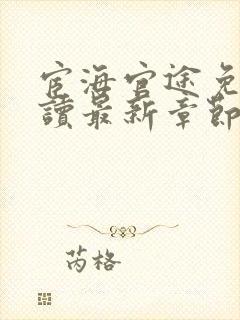 宦海官途免
讀最新章節
芮格